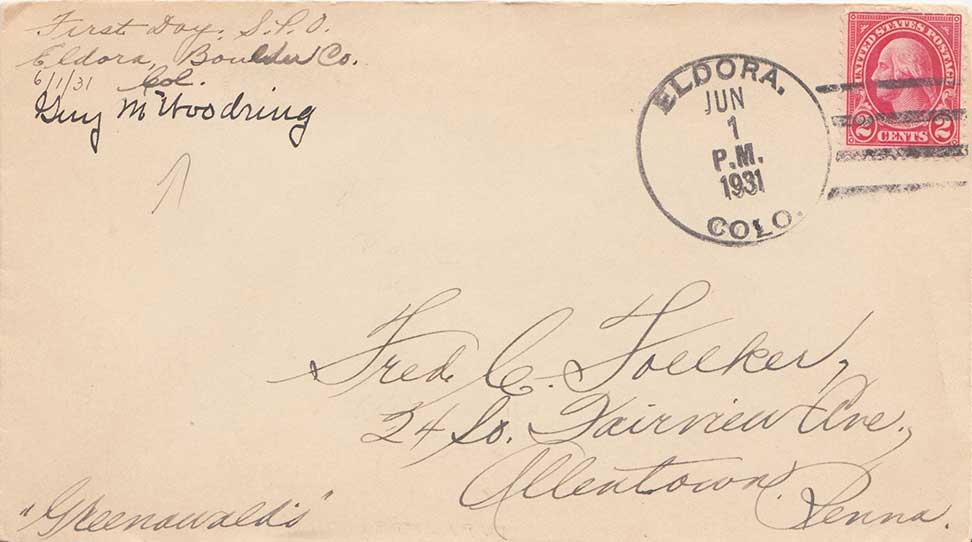 First Day. S.P.O.
Eldora, Boulder Co.
6/1/31 Col.
Guy M Woodring
ELDORA.
JUN
1
P.M.
1931
COLO.
UNITED STATES POSTAGE
2 CENTS 2
Fred. C. Foelker,
24 So. Fairview Ave.,
Allentown
Penna.
"Greenawald's"